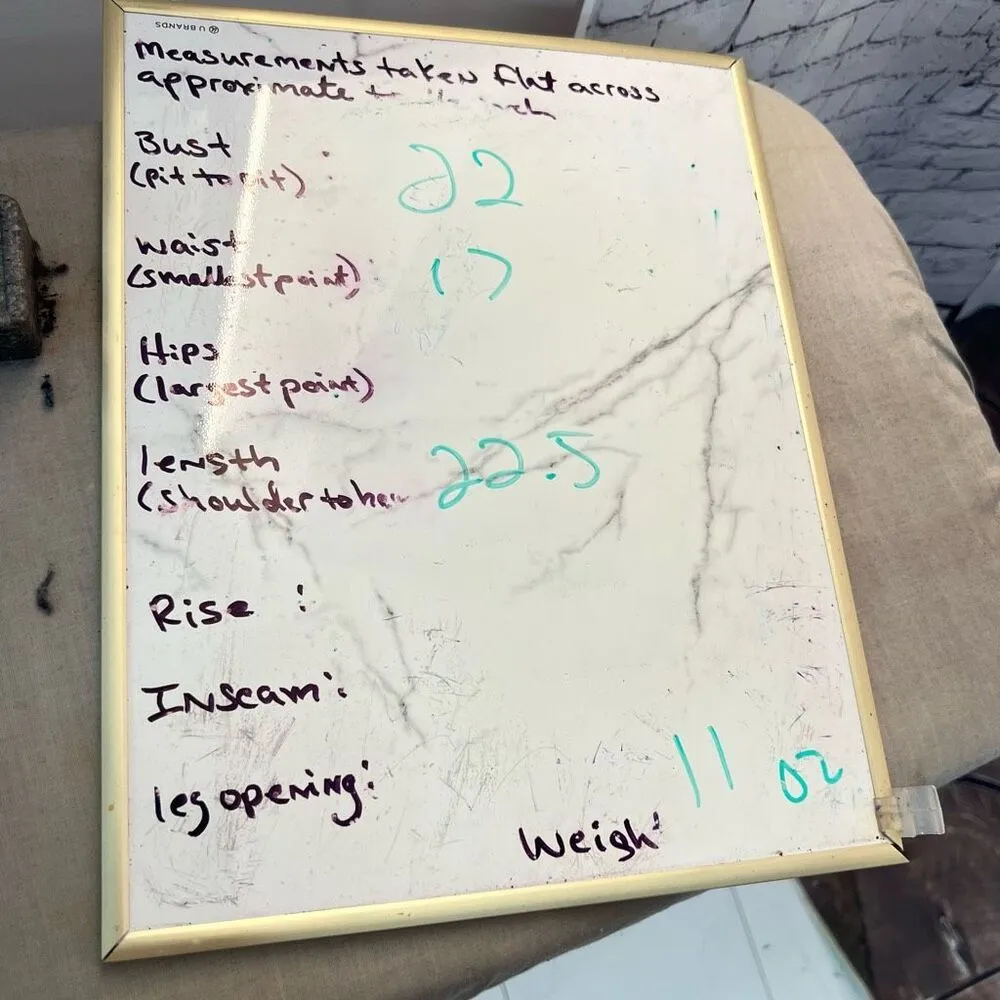 U BRANDS
Measurements taken flat across
approximate
Bust
(pit to pit)
22
Waist
(smallest point)
17
Hips
(largest point)
length
(shoulder to
22.5
Rise :
Inseam:
leg opening:
11 oz
Weigh